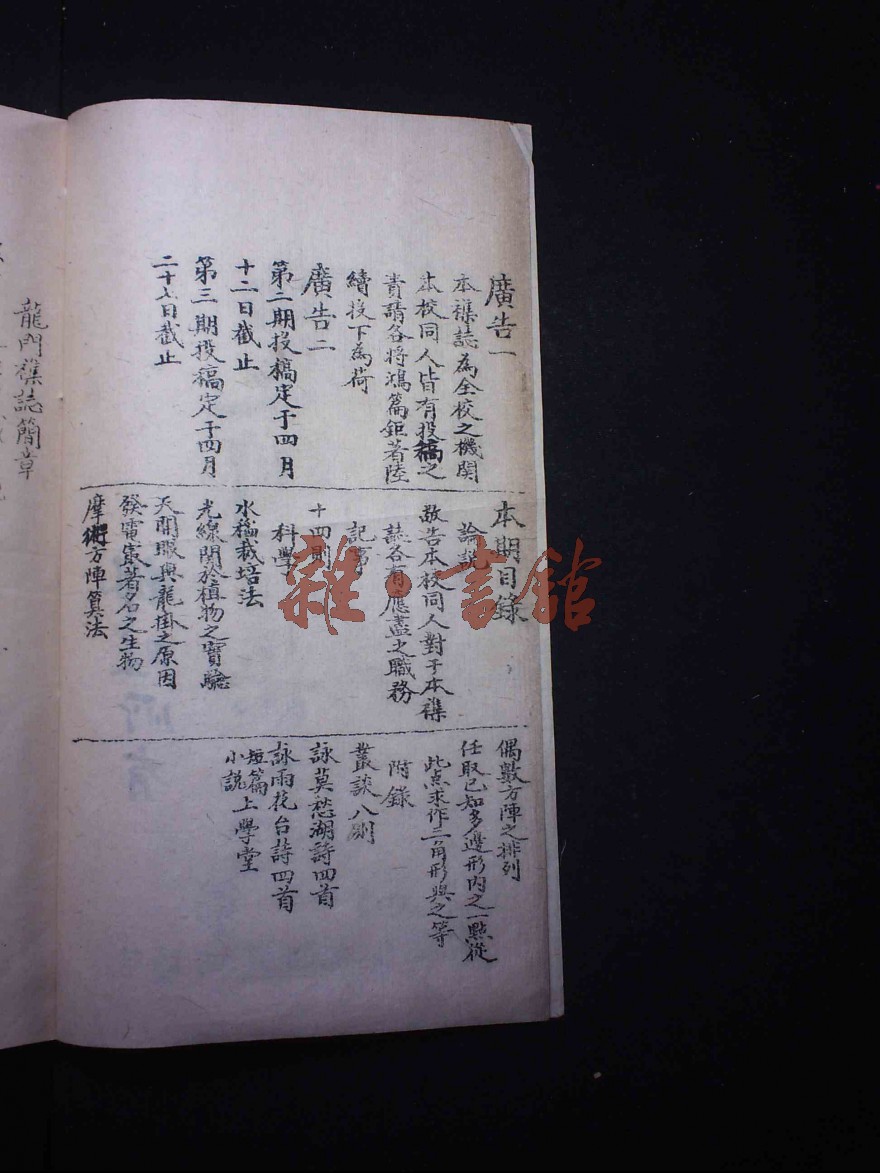 廣告一
本襍誌為全校之機関
本校同人皆有投稿之
責請各将鴻篇鉅著陸
續投下為荷
廣告二
第二期投稿定于四月
十二日截止
第三期投稿定于四月
二十八日截止
本期目錄
論説
敬告本校同人對于本襍
誌各有應盡之職務
記事
十四則
科學
水稲栽培法
光線関於植物之實驗
天開眼與龍掛之原因
發電最著名之生物
摩術方陣算法
偶數方陣之排列
任取已知多邊形内之一點從
此点求作三角形與之等
附錄
叢談八則
詠莫愁湖詩四首
詠雨花台詩四首
短篇小説上學堂
龍門襍誌簡章
雜·書館